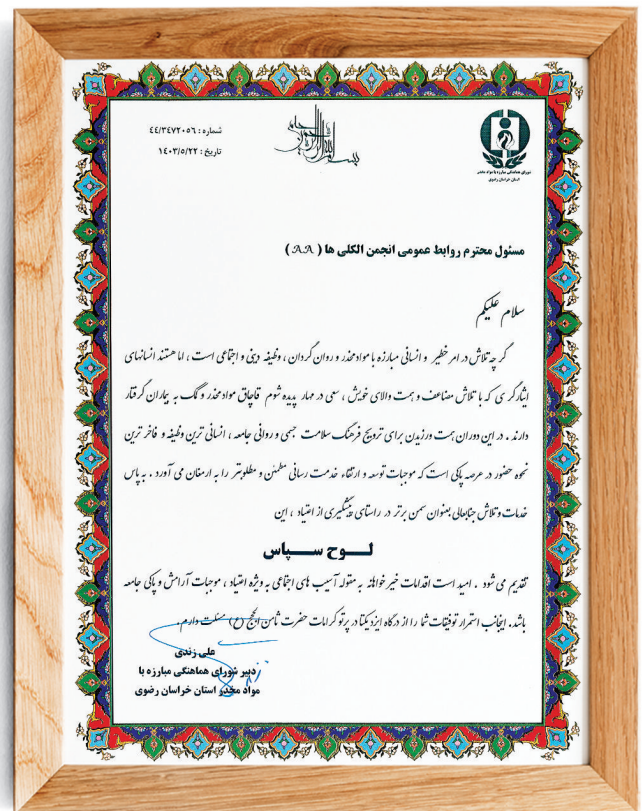 بسم الله الرحمن الرحیم
شماره : ٤٤/٣٤٧٢٠٥٦
تاریخ : ١٤٠٣/٥/٢٢
شورای هماهنگی مبارزه با مواد مخدر
استان خراسان رضوی
مسئول محترم روابط عمومی انجمن الکلی ها ( AA )
سلام علیکم
گر چه تلاش در امر خطیر و انسانی مبارزه با مواد مخدر و روان گردان ، وظیفه دینی و اجتماعی است ، اما هستند انسانهای
ایثارگری که با تلاش مضاعف و همت والای خویش ، سعی در مهار پدیده شوم قاچاق مواد مخدر و کمک به بیماران گرفتار
دارند . در این دوران همت ورزیدن برای ترویج فرهنگ سلامت جسمی و روانی جامعه ، انسانی ترین وظیفه و فاخر ترین
نحوه حضور در عرصه پاکی است که موجبات توسعه و ارتقاء خدمت رسانی مطمئن و مطلوبتر را به ارمغان می آورد . به پاس
خدمات و تلاش جنابعالی بعنوان سمن برتر در راستای پیشگیری از اعتیاد ، این
لــوح ســپاس
تقدیم می شود . امید است اقدامات خیر خواهانه به مقوله آسیب های اجتماعی به ویژه اعتیاد ، موجبات آرامش و پاکی جامعه
باشد . اینجانب استمرار توفیقات شما را از درگاه ایزد یکتا در پرتو کرامات حضرت ثامن الحجج (ع) مسئلت دارم .
علی زندی
دبیر شورای هماهنگی مبارزه با
مواد مخدر استان خراسان رضوی